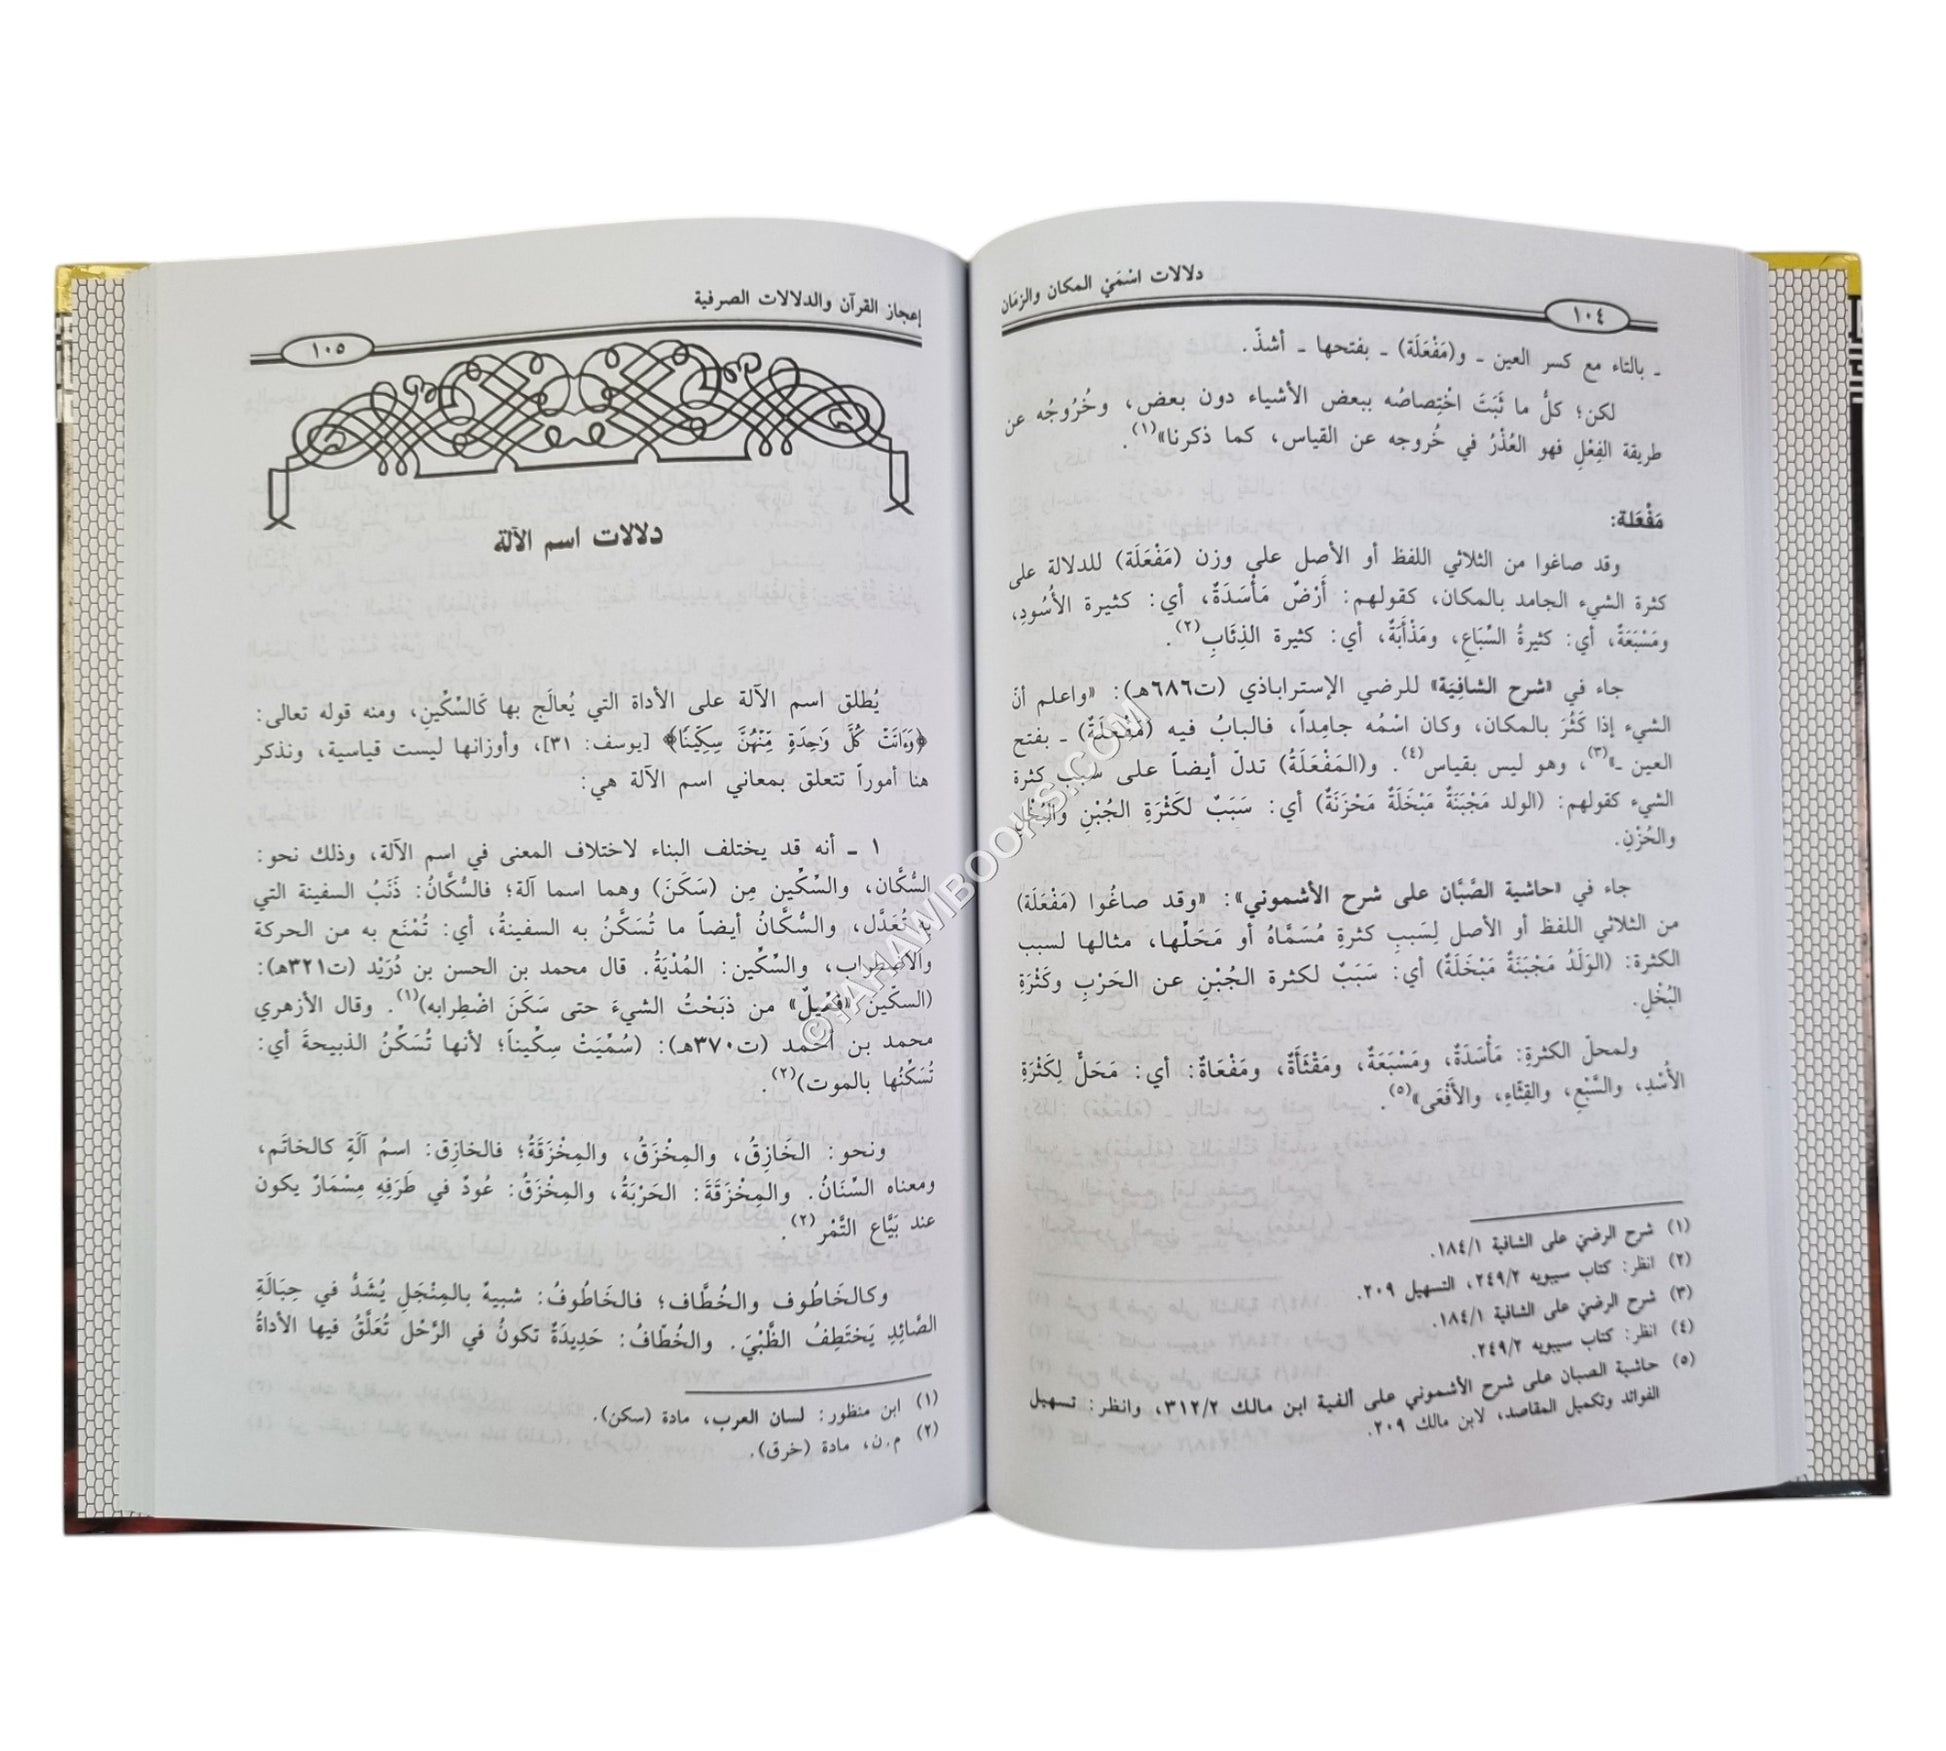 دلالات اسْمَيْ المكان والزمَان
١٠٤
ـ بالتاء مع كسر العين ـ و(مَفْعَلَة) ـ بفتحها ـ أشذّ.
لكن؛ كلُّ ما ثَبَتَ اخْتِصاصُه ببعض الأشياء دون بعض، وخُرُوجُه عن
طريقة الفِعْلِ فهو العُذْرُ في خُروجه عن القياس، كما ذكرنا»(١).
مَفْعَلة:
وقد صاغوا من الثلاثي اللفظ أو الأصل على وزن (مَفْعَلَة) للدلالة على
كثرة الشيء الجامد بالمكان، كقولهم: أَرْضٌ مَأْسَدَةٌ، أي: كثيرة الأُسُودِ،
ومَسْبَعَةٌ، أي: كثيرةُ السِّبَاعِ، ومَذْأَبَةٌ، أي: كثيرة الذِئَابِ(٢).
جاء في «شرح الشافِيَة» للرضي الإستراباذي (ت٦٨٦هـ): «واعلم أنّ
الشيء إذا كَثُرَ بالمكان، وكان اسْمُه جامِداً، فالبابُ فيه (مَفْعَلَةٌ) ـ بفتح
العين ـ»(٣)، وهو ليس بقياس(٤). و(المَفْعَلَةُ) تدلّ أيضاً على سبب كثرة
الشيء كقولهم: (الولد مَجْبَنَةٌ مَبْخَلَةٌ مَحْزَنَةٌ) أي: سَبَبٌ لكَثْرَةِ الجُبْنِ والبُخْلِ
والحُزْنِ.
جاء في «حاشية الصَّبَّان على شرح الأشموني»: «وقد صاغُوا (مَفْعَلَة)
من الثلاثي اللفظ أو الأصل لِسَببِ كثرةِ مُسَمَّاهُ أو مَحَلِّها، مثالها لسبب
الكثرة: (الوَلَدُ مَجْبَنَةٌ مَبْخَلَةٌ) أي: سَبَبٌ لكثرة الجُبْنِ عن الحَرْبِ وكَثْرَةِ
البُخْلِ.
ولمحلّ الكثرةِ: مَأْسَدَةٌ، ومَسْبَعَةٌ، ومَقْثَأَةٌ، ومَفْعَاةٌ: أي: مَحَلٌّ لِكَثْرَةِ
الأُسْدِ، والسَّبْعِ، والقِثَاءِ، والأَفْعَى»(٥).
(١) شرح الرضيّ على الشافية ١/١٨٤.
(٢) انظر: كتاب سيبويه ٢/٢٤٩، التسهيل ٢٠٩.
(٣) شرح الرضيّ على الشافية ١/١٨٤.
(٤) انظر: كتاب سيبويه ٢/٢٤٩.
(٥) حاشية الصبان على شرح الأشموني على ألفية ابن مالك ٢/٣١٢، وانظر: تسهيل
الفوائد وتكميل المقاصد، لابن مالك ٢٠٩.
إعجاز القرآن والدلالات الصرفية
١٠٥
دلالات اسم الآلة
يُطلق اسم الآلة على الأداة التي يُعالَج بها كَالسِّكّينِ، ومنه قوله تعالى:
﴿وَءَاتَتْ كُلَّ وَٰحِدَةٍ مِّنْهُنَّ سِكِّينًا﴾ [يوسف: ٣١]، وأوزانها ليست قياسية، ونذكر
هنا أموراً تتعلق بمعاني اسم الآلة هي:
١ ـ أنه قد يختلف البناء لاختلاف المعنى في اسم الآلة، وذلك نحو:
السُّكَّان، والسِّكِّين مِن (سَكَنَ) وهما اسما آلة؛ فالسُّكَّانُ: ذَنَبُ السفينة التي
به تُعَدَّل، والسُّكَّانُ أيضاً ما تُسَكَّنُ به السفينةُ، أي: تُمْنَع به من الحركة
والاضطراب، والسِّكِّين: المُدْيَةُ. قال محمد بن الحسن بن دُرَيْد (ت٣٢١هـ):
(السكّين «فِعِّيلٌ» من ذبَحْتُ الشيءَ حتى سَكَنَ اضْطِرابه)(١). وقال الأزهري
محمد بن أحمد (ت٣٧٠هـ): (سُمِّيَتْ سِكِّيناً؛ لأنها تُسَكِّنُ الذبيحةَ أي:
تُسَكِّنُها بالموت)(٢).
ونحو: الخَازِقُ، والمِخْزَقُ، والمِخْزَقَةُ؛ فالخازِق: اسمُ آلَةِ كالخاتَم،
ومعناه السِّنَانُ. والمِخْزَقَةَ: الحَرْبَةُ، والمِخْزَقُ: عُودٌ في طَرَفِهِ مِسْمَارٌ يكون
عند بَيَّاع التَّمْر(٢).
وكالخَاطُوف والخُطَّاف؛ فالخَاطُوفُ: شبيهٌ بالمِنْجَلِ يُشَدُّ في حِبَالَةِ
الصَّائِدِ يَختَطِفُ الظَّبْيَ. والخُطّافُ: حَدِيدَةٌ تكونُ في الرَّحْل تُعَلَّقُ فيها الأداةُ
(١) ابن منظور: لسان العرب، مادة (سكن).
(٢) م.ن، مادة (خرق).
©TAHAWIBOOKS.COM